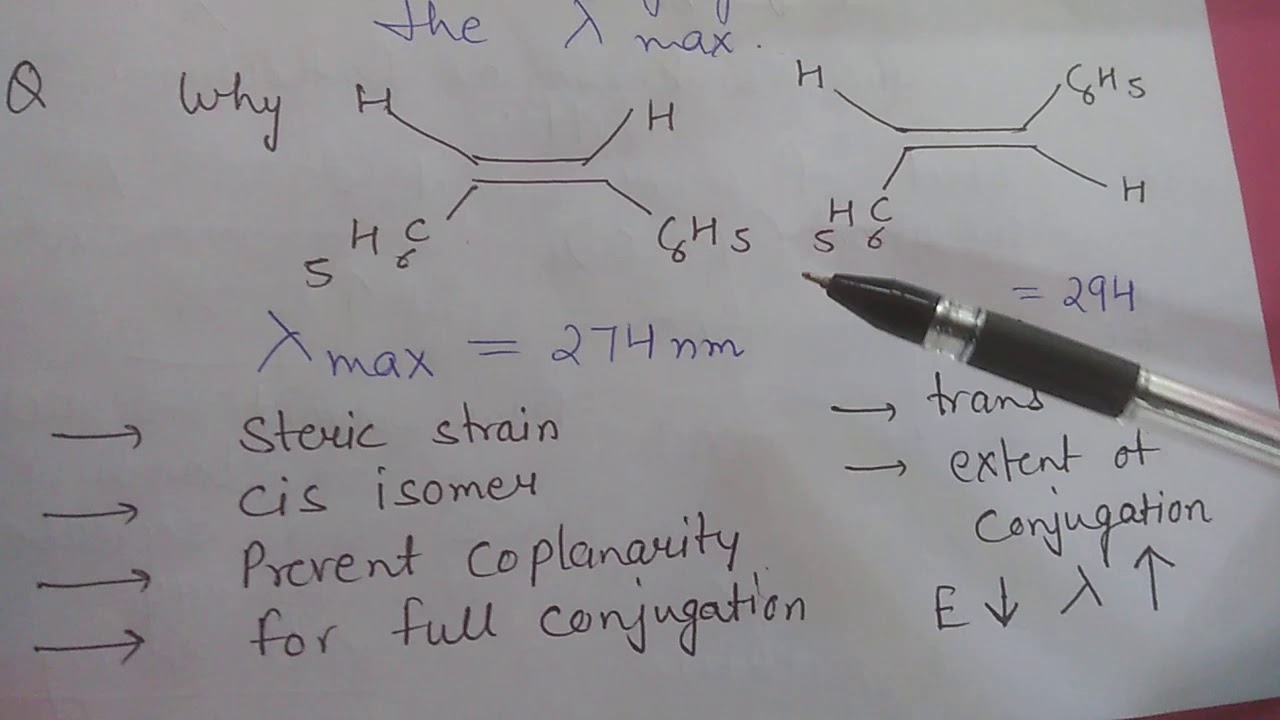 the λ max.
Q Why
H H
H C₆ 5 C₆H5
H C₆H5
5 H C₆ H
λ max = 274nm
= 294
→ Steric strain
→ cis isomer
→ Prevent coplanarity
→ for full conjugation
→ trans
→ extent of
conjugation
E ↓ λ ↑